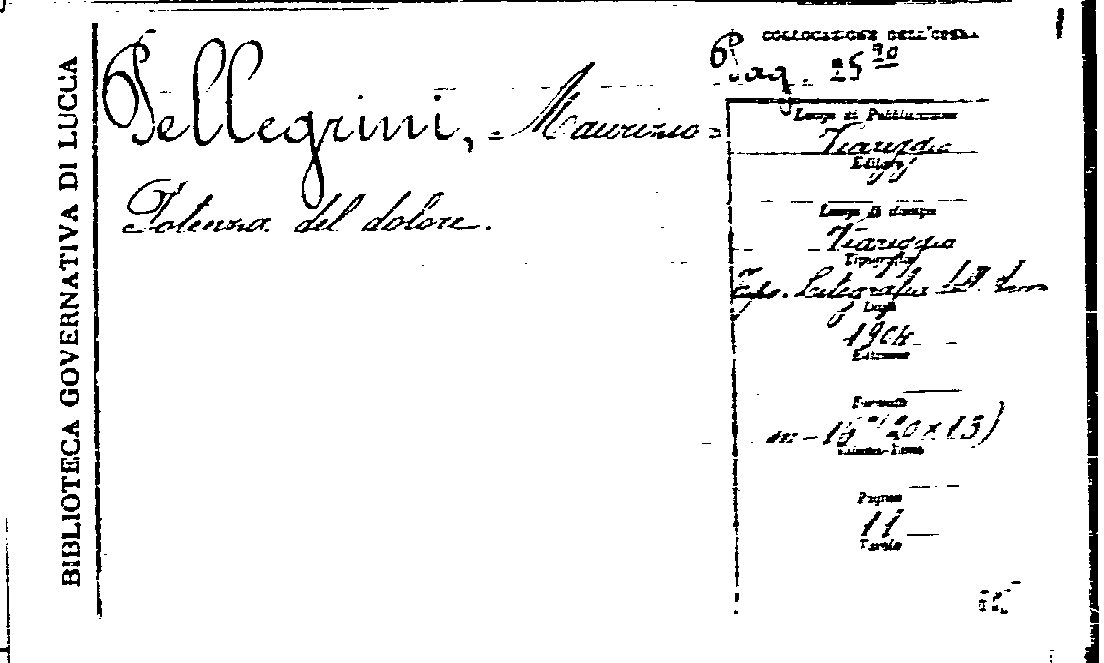 BIBLIOTECA GOVERNATIVA DI LUCCA
Pellegrini, = Maurizio =
Potenza del dolore.
COLLOCAZIONE DELL'OPERA
Luogo di Pubblicazione
Viareggio
Editore
Luogo di stampa
Viareggio
Tipografia
Tipo. Litografia
Luglio
1904
Edizione
Formato
in-16° (20 x 13)
Volume-Tomo
Pagine
11
Tavole